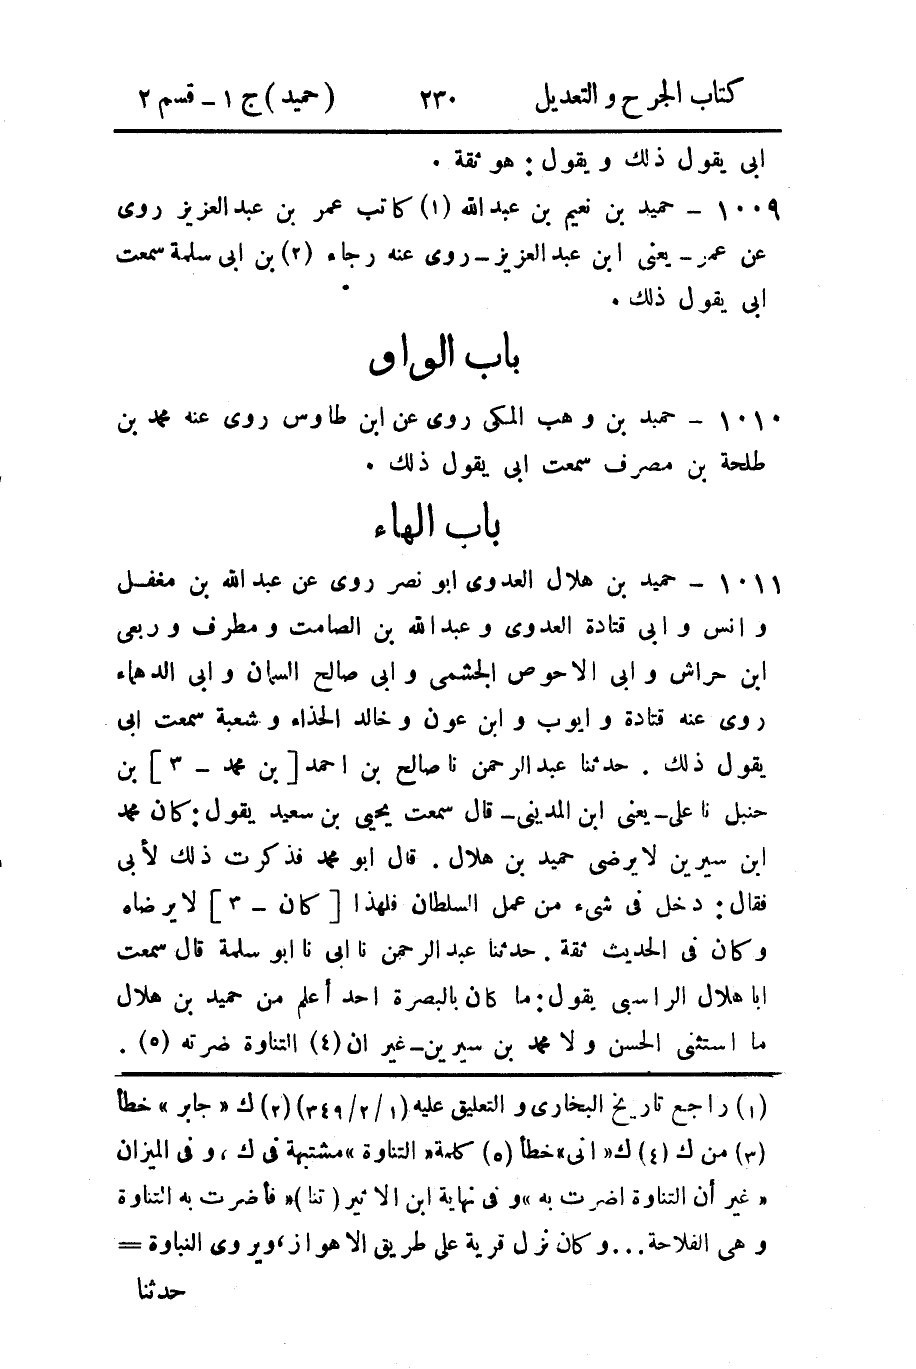 كتاب الجرح و التعديل ٢٣٠ (حميد) ج ١ - قسم ٢
ابى يقول ذلك و يقول: هو ثقة .
١٠٠٩ - حميد بن نعيم بن عبد الله (١) كاتب عمر بن عبد العزيز روى
عن عمر - يعنى ابن عبد العزيز - روى عنه رجاء (٢) بن ابى سلمة سمعت
ابى يقول ذلك .
باب الواو
١٠١٠ - حميد بن وهب المكى روى عن ابن طاوس روى عنه محمد بن
طلحة بن مصرف سمعت ابى يقول ذلك .
باب الهاء
١٠١١ - حميد بن هلال العدوى ابو نصر روى عن عبد الله بن مغفل
و انس و ابى قتادة العدوى و عبد الله بن الصامت و مطرف و ربعى
ابن حراش و ابى الاحوص الجشمى و ابى صالح السمان و ابى الدهماء
روى عنه قتادة و ايوب و ابن عون و خالد الحذاء و شعبة سمعت ابى
يقول ذلك . حدثنا عبد الرحمن نا صالح بن احمد [ بن محمد - ٣ ] بن
حنبل نا على - يعنى ابن المدينى - قال سمعت يحيى بن سعيد يقول: كان محمد
ابن سيرين لا يرضى حميد بن هلال . قال ابو محمد فذكرت ذلك لأبى
فقال: دخل فى شىء من عمل السلطان فلهذا [ كان - ٣ ] لا يرضاه
و كان فى الحديث ثقة . حدثنا عبد الرحمن نا ابى نا ابو سلمة قال سمعت
ابا هلال الراسبى يقول: ما كان بالبصرة احد أعلم من حميد بن هلال
ما استثنى الحسن و لا محمد بن سيرين - غير ان (٤) التناوة ضرته (٥) .
(١) راجع تاريخ البخارى و التعليق عليه (٣٤٩/٢/١) (٢) ك « جابر » خطأ
(٣) من ك (٤) ك « انى » خطأ (٥) كلمة « التناوة » مشتبهة فى ك ، و فى الميزان
« غير أن التناوة اضرت به » و فى نهاية ابن الاثير ( تنا ) « فأضرت به التناوة
و هى الفلاحة ... و كان نزل قرية على طريق الاهواز ، و يروى النباوة =
حدثنا